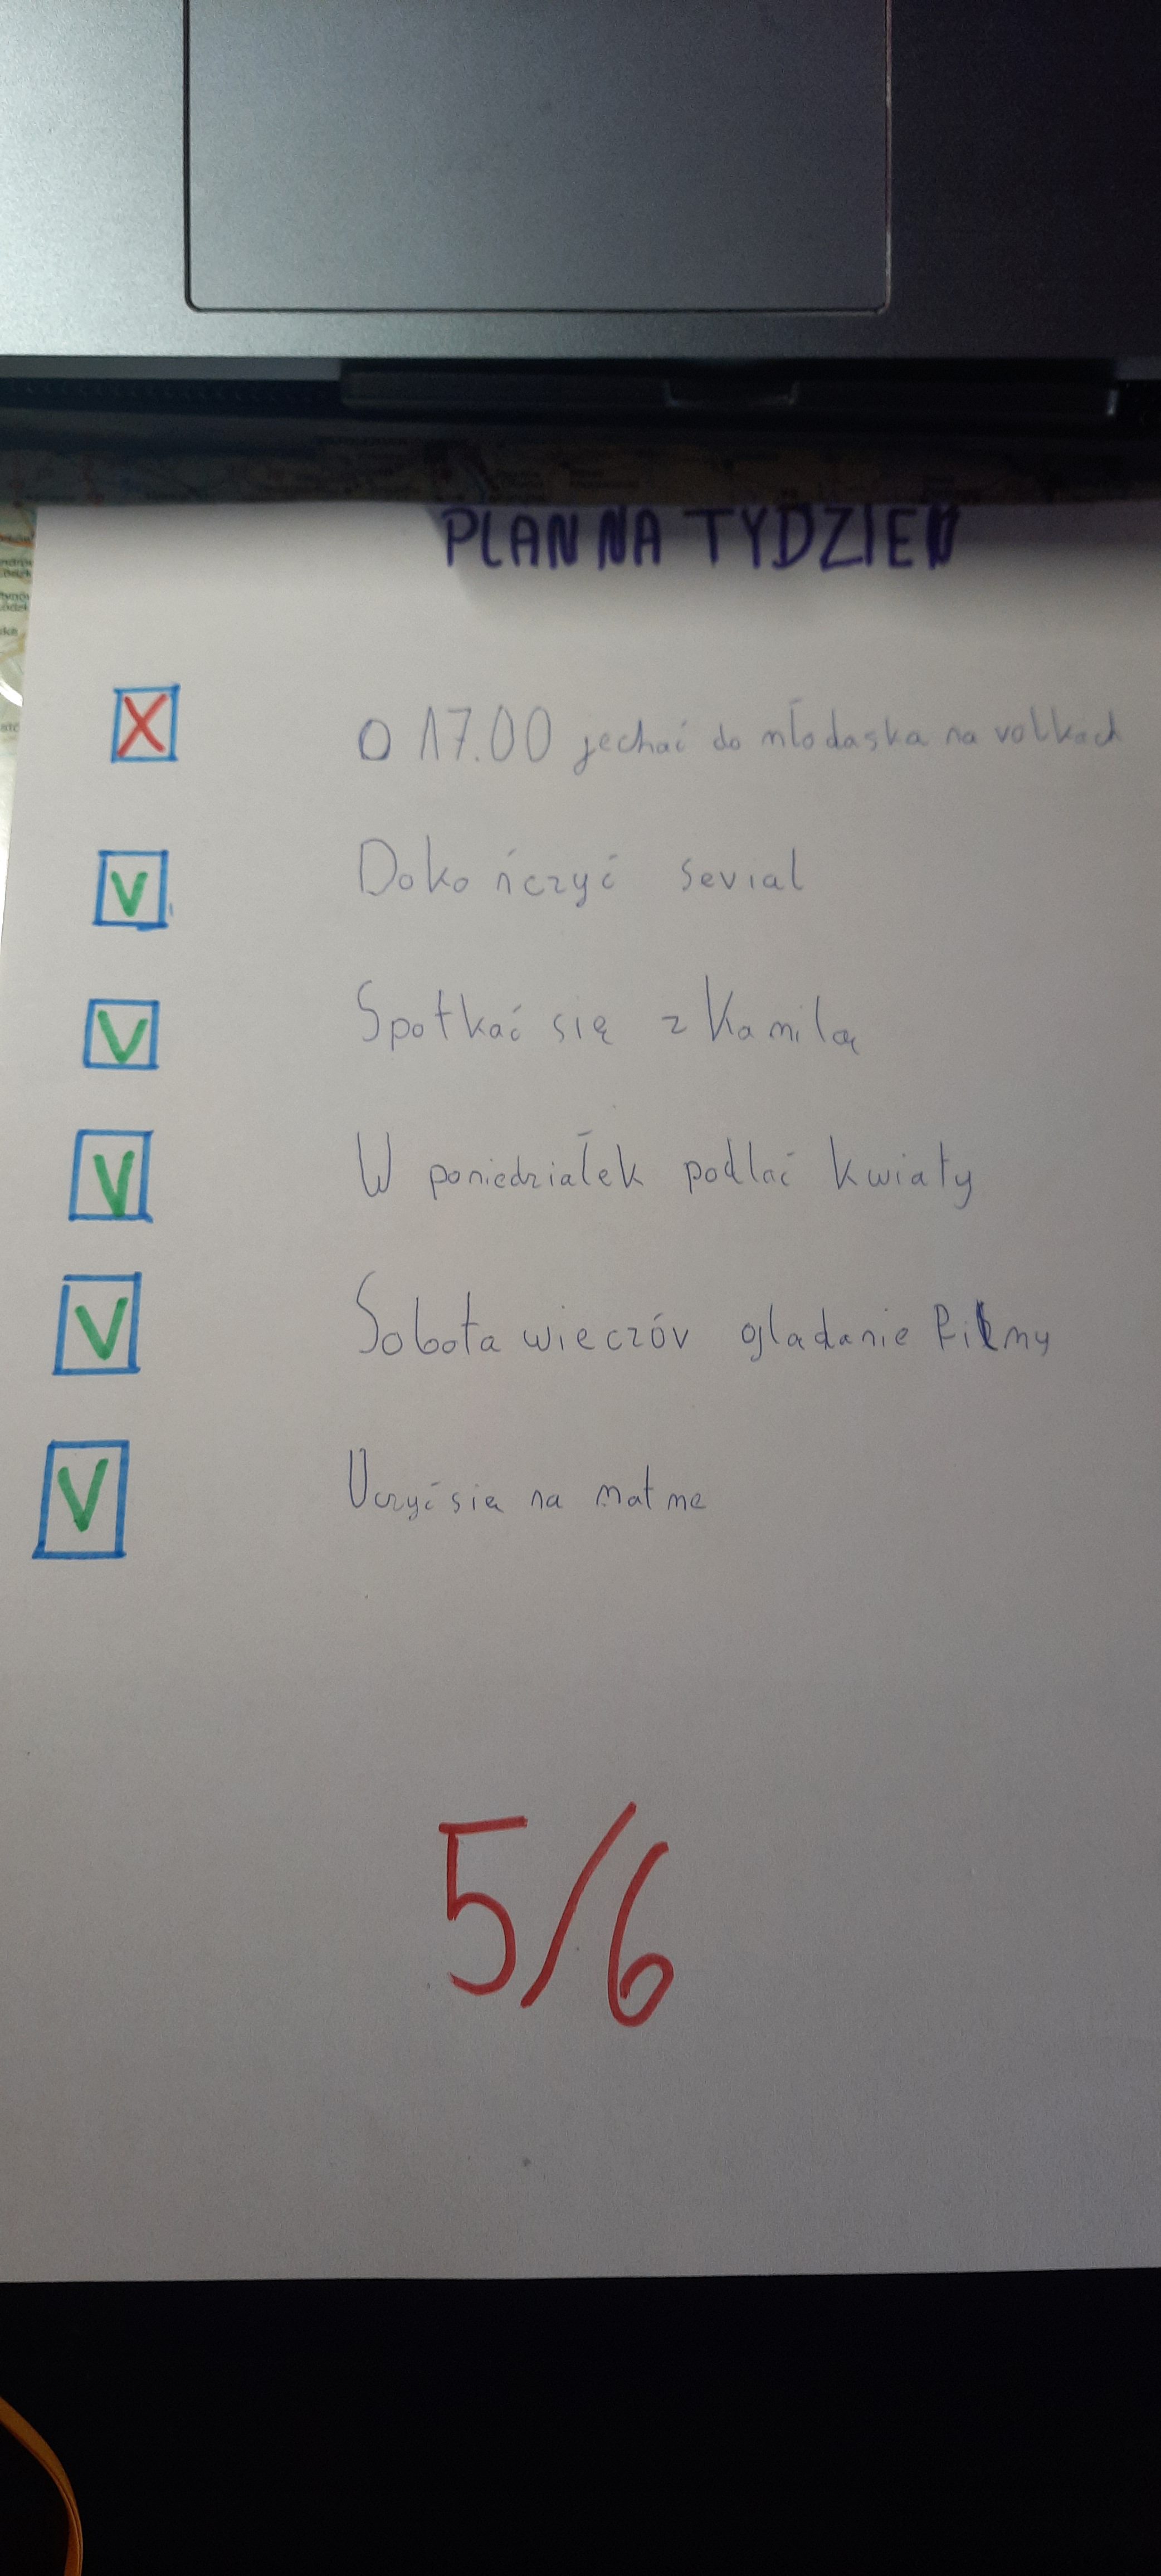 PLAN NA TYDZIEŃ
X O 17.00 jechać do młodaska na rolkach
V Dokończyć serial
V Spotkać się z Kamilą
V W poniedziałek podlać kwiaty
V Sobota wieczór oglądanie filmy
V Uczyć się na matme
5/6